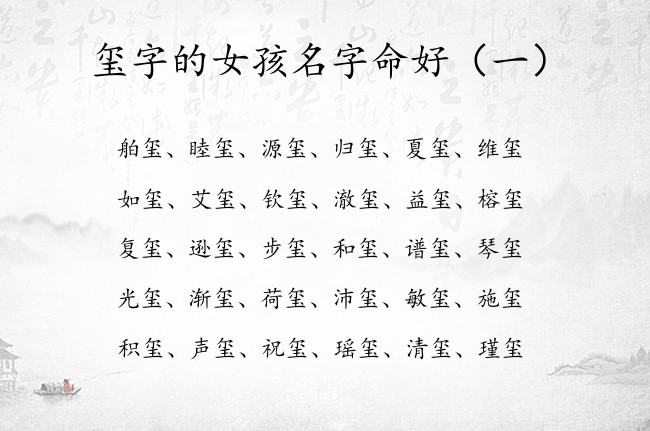 玺字的女孩名字命好（一）
舶玺、睦玺、源玺、归玺、夏玺、维玺
如玺、艾玺、钦玺、澈玺、益玺、榕玺
复玺、逊玺、步玺、和玺、谱玺、琴玺
光玺、渐玺、荷玺、沛玺、敏玺、施玺
积玺、声玺、祝玺、瑶玺、清玺、瑾玺